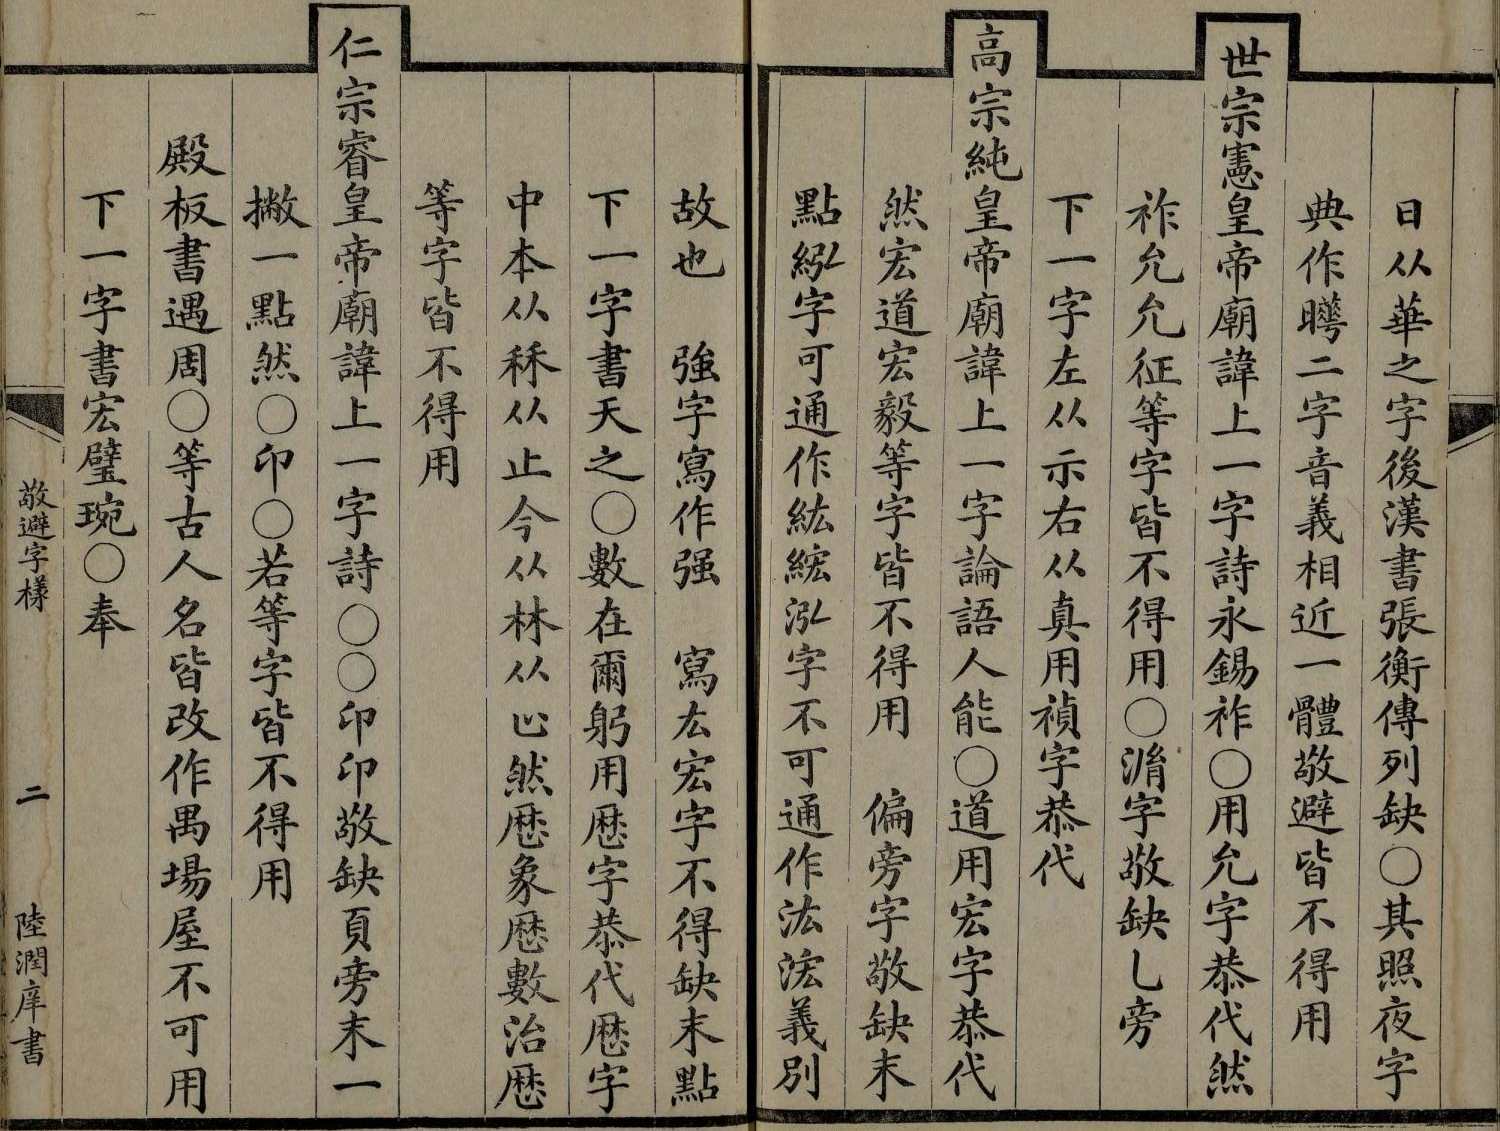 日从華之字後漢書張衡傳列缺○其照夜字
典作曄二字音義相近一體敬避皆不得用
世宗憲皇帝廟諱上一字詩永錫祚○用允字恭代然
祚允允征等字皆不得用○濟字敬缺乚旁
下一字左从示右从真用禎字恭代
高宗純皇帝廟諱上一字論語人能○道用宏字恭代
然宏道宏毅等字皆不得用 偏旁字敬缺末
點紭字可通作紘綋泓字不可通作汯浤義別
故也 強字寫作强 寫厷宏字不得缺末點
下一字書天之○數在爾躬用厯字恭代厯字
中本从秝从止今从林从心然厯象厯數治厯
等字皆不得用
仁宗睿皇帝廟諱上一字詩○○卬卬敬缺頁旁末一
撇一點然○卬○若等字皆不得用
殿板書遇周○等古人名皆改作禺場屋不可用
下一字書宏璧琬○奉
敬避字樣
二
陸潤庠書